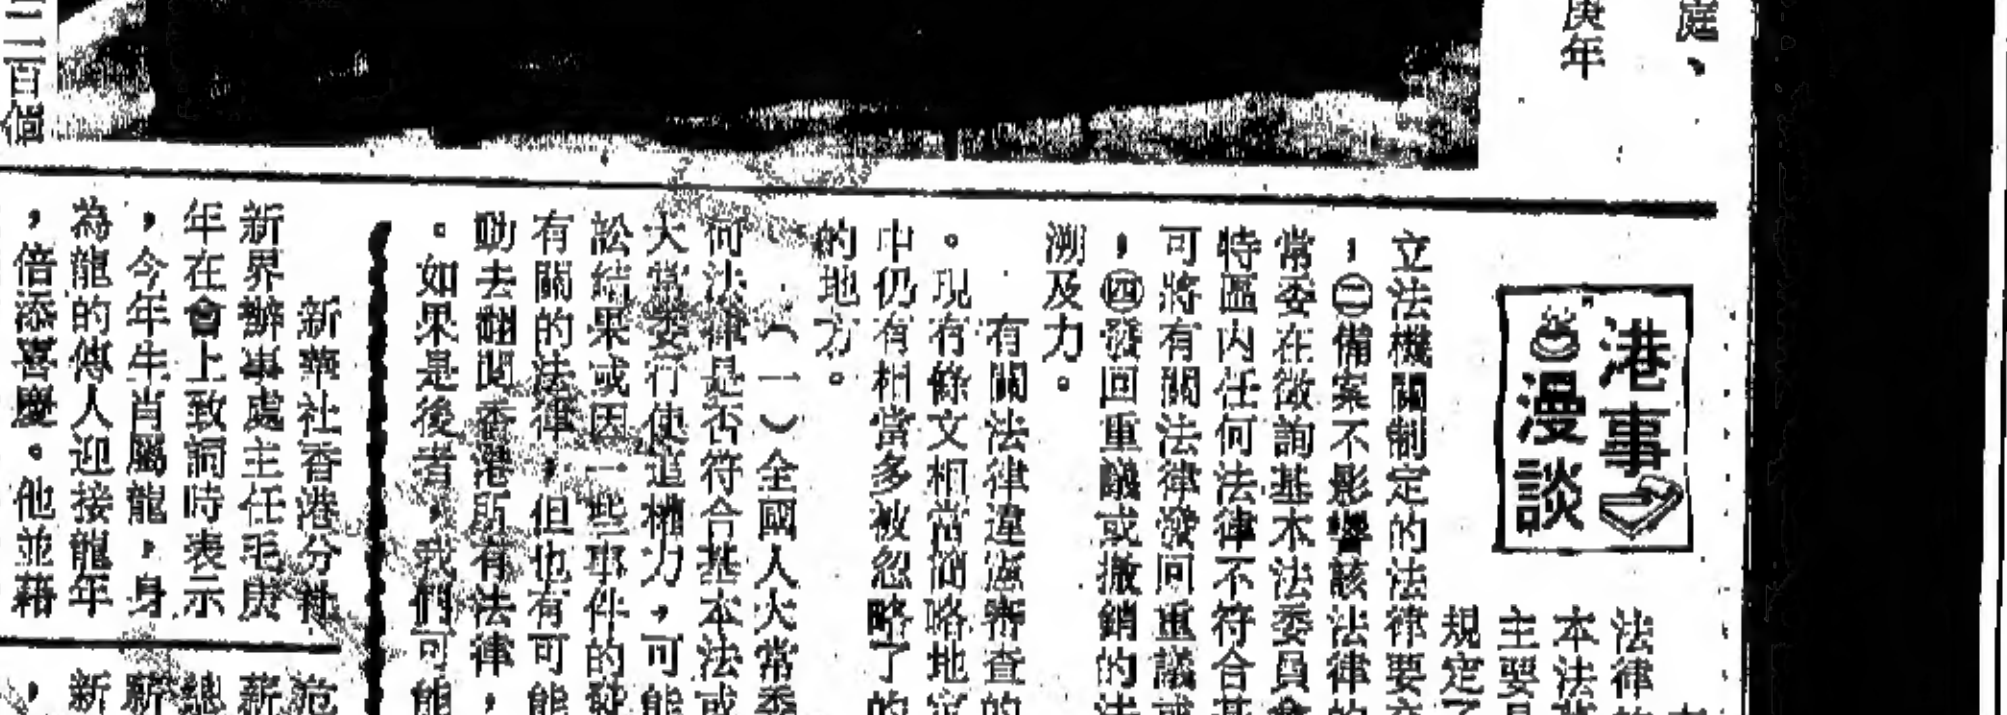 庭、
庚年
二百
港事
漫談
法律
本法
主要
規定了
立法機關制定的法律要
，㊁備案不影響該法律的
常委在徵詢基本法委員會
特區內任何法律不符合基
可將有關法律發回重議或
，㊃發回重議或撤銷的法
溯及力。
有關法律違憲審查的
。現有條文相當簡略地
中仍有相當多被忽略了的
的地方。
（一）全國人大常委
何法律是否符合基本法或
大常委行使這權力，可能
訟結果或因一些事件的發
有關的法律，但也有可能
動去翻閱香港所有法律，
。如果是後者，我們可能
新華社香港分社
新界辦事處主任毛庚
年在會上致詞時表示
，今年生肖屬龍，身
為龍的傳人迎接龍年
，倍添喜慶。他並藉
新